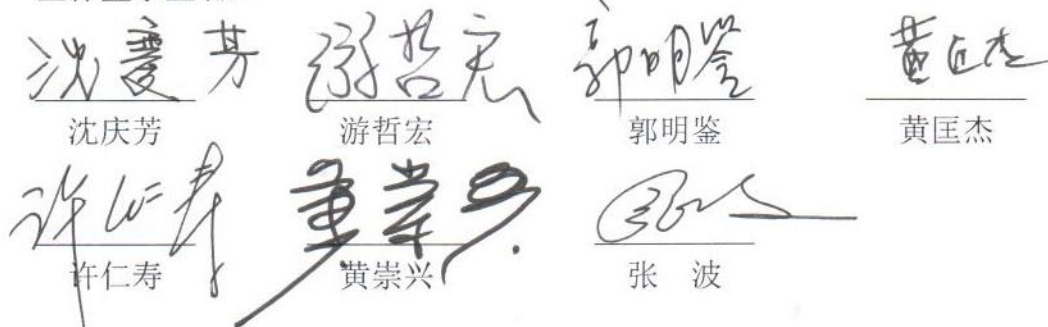 沈慶芳 游哲宏 郭明鉴 黄匡杰
沈庆芳 游哲宏 郭明鉴 黄匡杰
许仁寿
许仁寿 黄崇兴 张 波